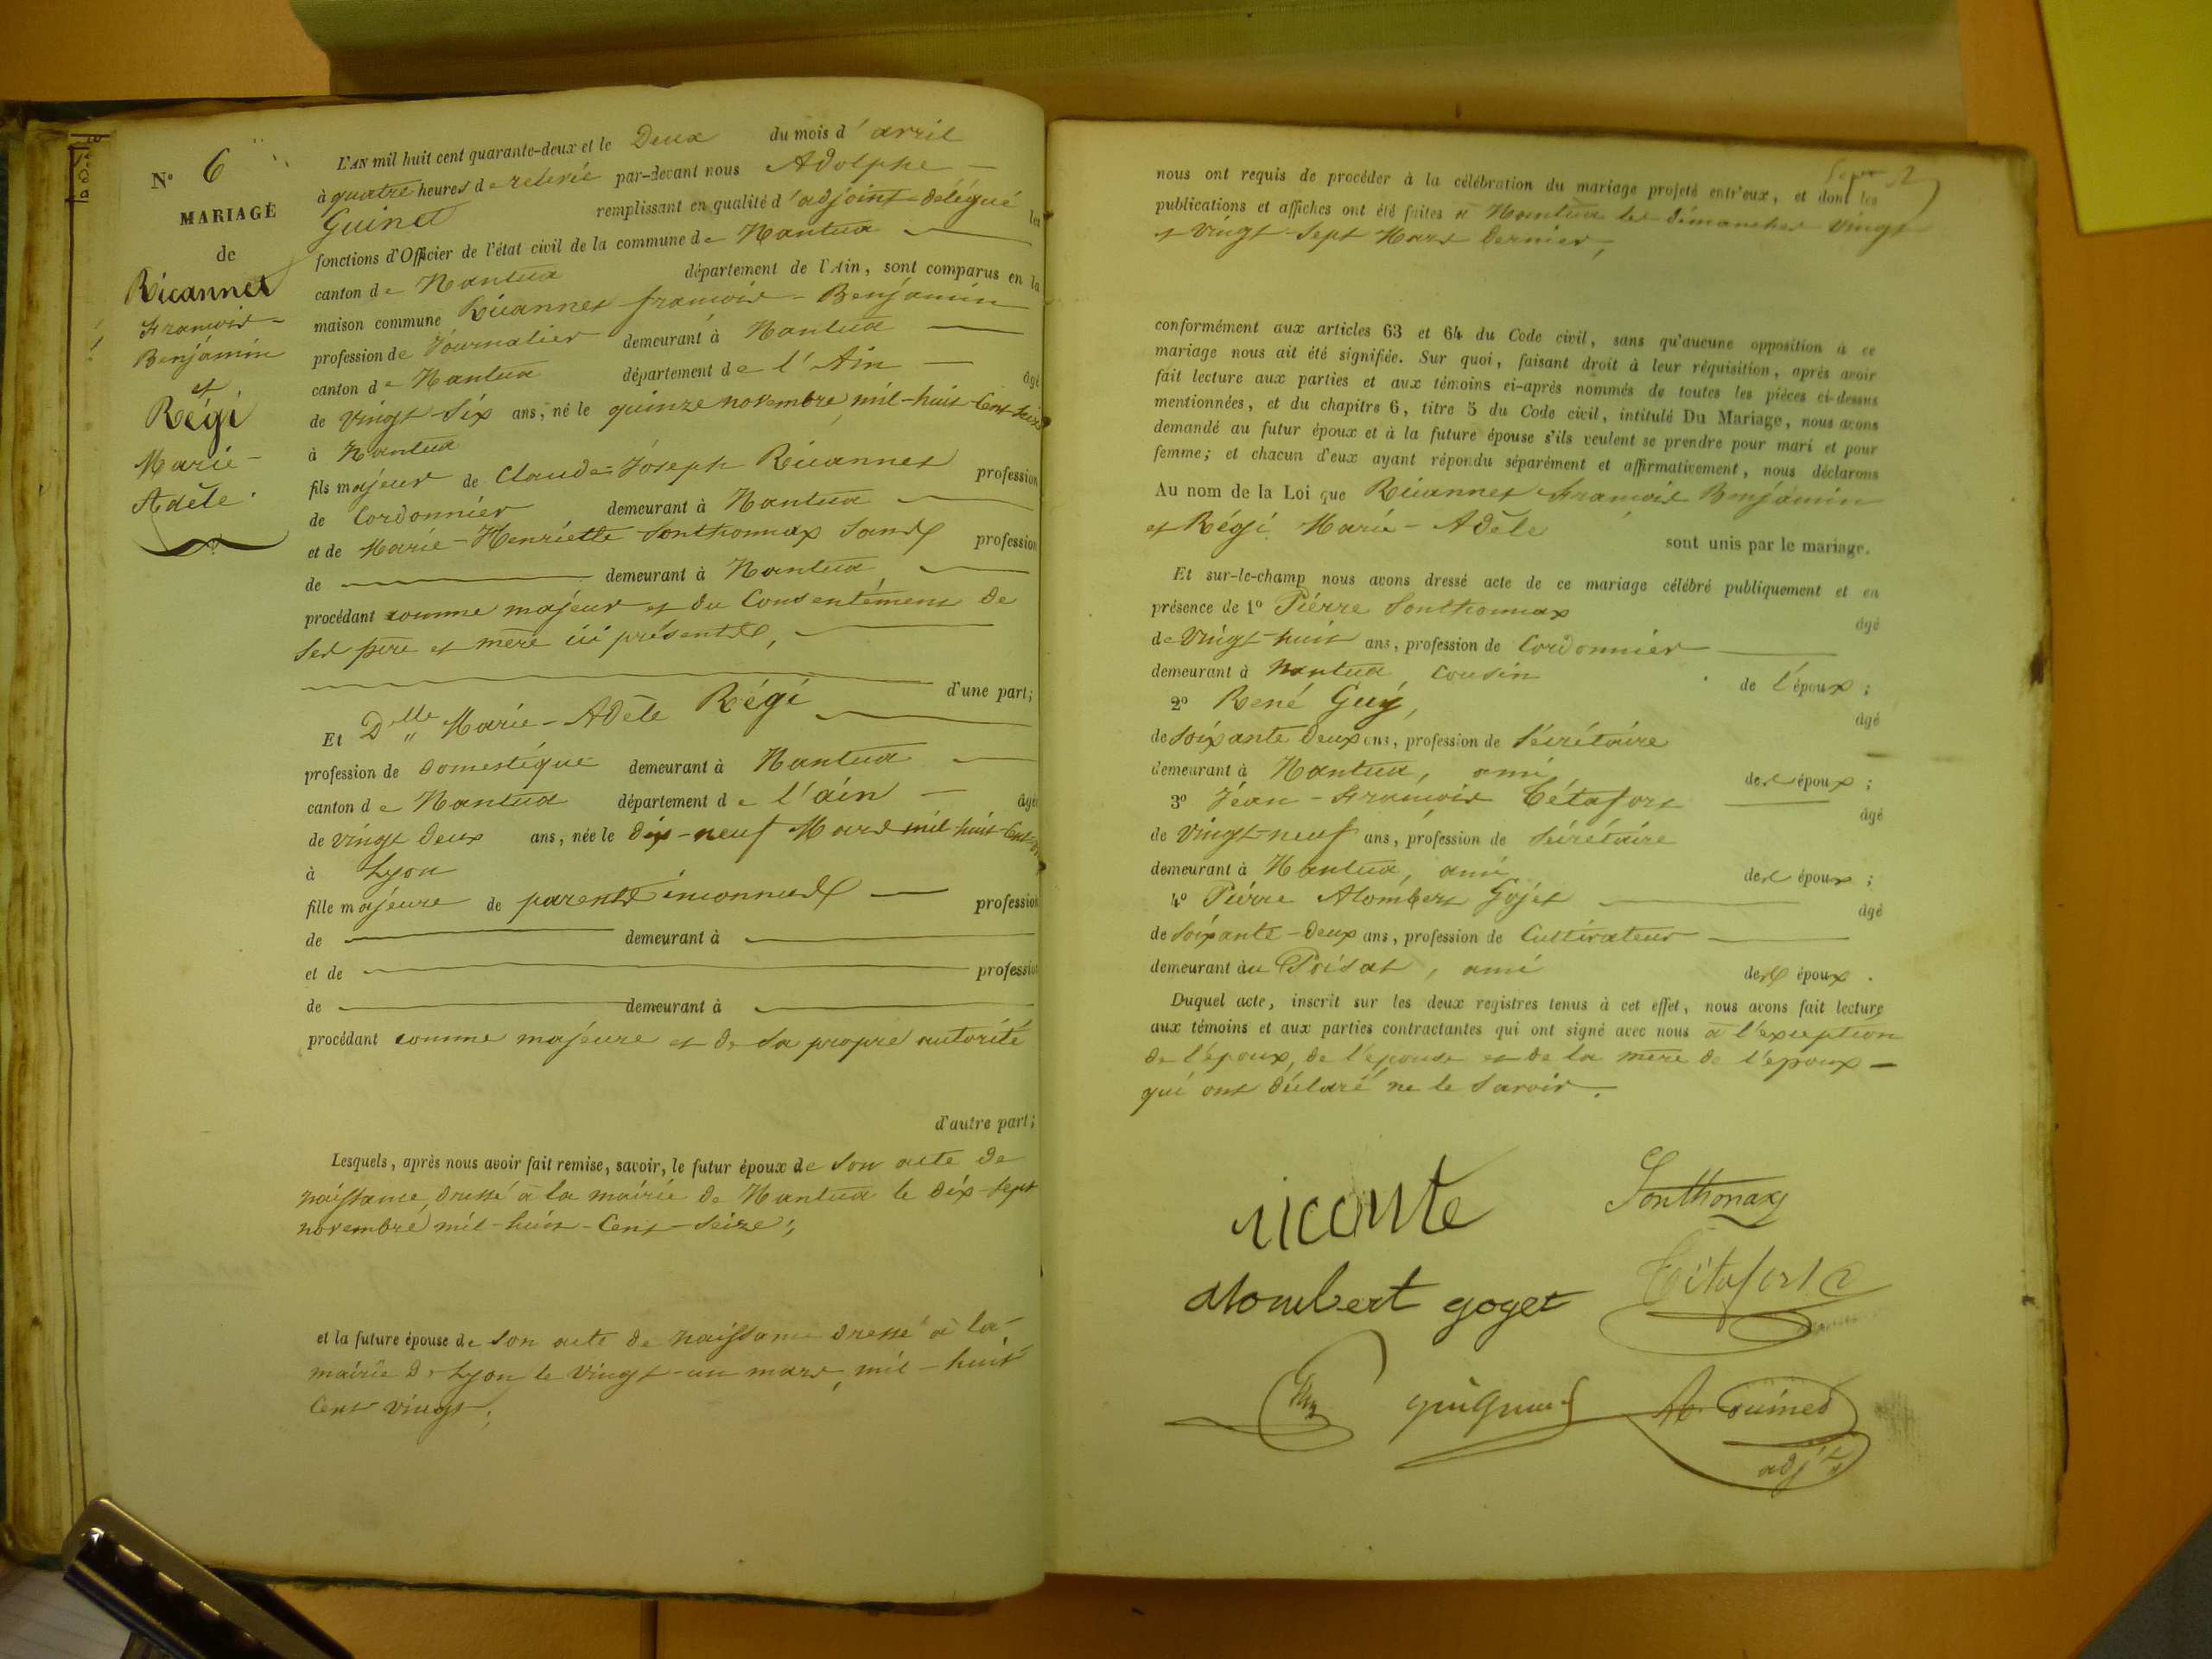 N° 6
MARIAGE
de
Ricannet
François-
Benjamin
et
Régi
Marie-
Adèle.
L'AN mil huit cent quarante-deux et le Deux du mois d'avril
à quatre heures de relevée par-devant nous Adolphe
Guinet remplissant en qualité d'adjoint délégué les
fonctions d'Officier de l'état civil de la commune de Nantua
canton de Nantua département de l'Ain, sont comparus en la
maison commune Ricannet françois-Benjamin
profession de Journalier demeurant à Nantua
canton de Nantua département de l'Ain âgé
de Vingt-Six ans, né le quinze novembre, mil-huit-Cent-Seize
à Nantua
fils majeur de Claude-Joseph Ricannet profession
de Cordonnier demeurant à Nantua
et de Marie-Henriette Sonthonnax Sans profession
de demeurant à Nantua
procédant comme majeur et du Consentement de
Ses père et mère ici présents,
d'une part;
Et Dlle Marie-Adèle Régi
profession de Domestique demeurant à Nantua
canton de Nantua département de l'ain âgée
de vingt deux ans, née le dix-neuf Mars mil-huit-Cent-
à Lyon
fille majeure de parents inconnus profession
de demeurant à
et de profession
de demeurant à
procédant comme majeure et de Sa propre autorité
d'autre part;
Lesquels, après nous avoir fait remise, savoir, le futur époux de Son acte de
naissance, dressé à la mairie de Nantua le dix-Sept
novembre mil-huit-Cent-Seize;
et la future épouse de Son acte de naissance dressé à la
mairie de Lyon le Vingt-un mars, mil-huit
Cent vingt;
nous ont requis de procéder à la célébration du mariage projeté entr'eux, et dont les
publications et affiches ont été faites à Nantua les dimanches Vingt
et Vingt-Sept Mars dernier,
conformément aux articles 63 et 64 du Code civil, sans qu'aucune opposition à ce
mariage nous ait été signifiée. Sur quoi, faisant droit à leur réquisition, après avoir
fait lecture aux parties et aux témoins ci-après nommés de toutes les pièces ci-dessus
mentionnées, et du chapitre 6, titre 5 du Code civil, intitulé Du Mariage, nous avons
demandé au futur époux et à la future épouse s'ils veulent se prendre pour mari et pour
femme; et chacun d'eux ayant répondu séparément et affirmativement, nous déclarons
Au nom de la Loi que Ricannet François Benjamin
et Régi Marie-Adèle sont unis par le mariage.
Et sur-le-champ nous avons dressé acte de ce mariage célébré publiquement et en
présence de 1° Pierre Sonthonnax âgé
de Vingt-huit ans, profession de Cordonnier
demeurant à Nantua, Cousin de l'époux;
2° René Guy, âgé
de Soixante deux ans, profession de Sécrétaire
demeurant à Nantua, ami des époux;
3° Jean-François Tétafort âgé
de Vingt-neuf ans, profession de Sécrétaire
demeurant à Nantua, ami des époux;
4° Pierre Alombert Gojet âgé
de Soixante-deux ans, profession de Cultivateur
demeurant au Poisat, ami des époux.
Duquel acte, inscrit sur les deux registres tenus à cet effet, nous avons fait lecture
aux témoins et aux parties contractantes qui ont signé avec nous à l'exception
de l'époux, de l'épouse et de la mère de l'époux
qui ont déclaré ne le Savoir.
Sonthonax
alombert goget
Tétafort
Ad Guinet
adjt